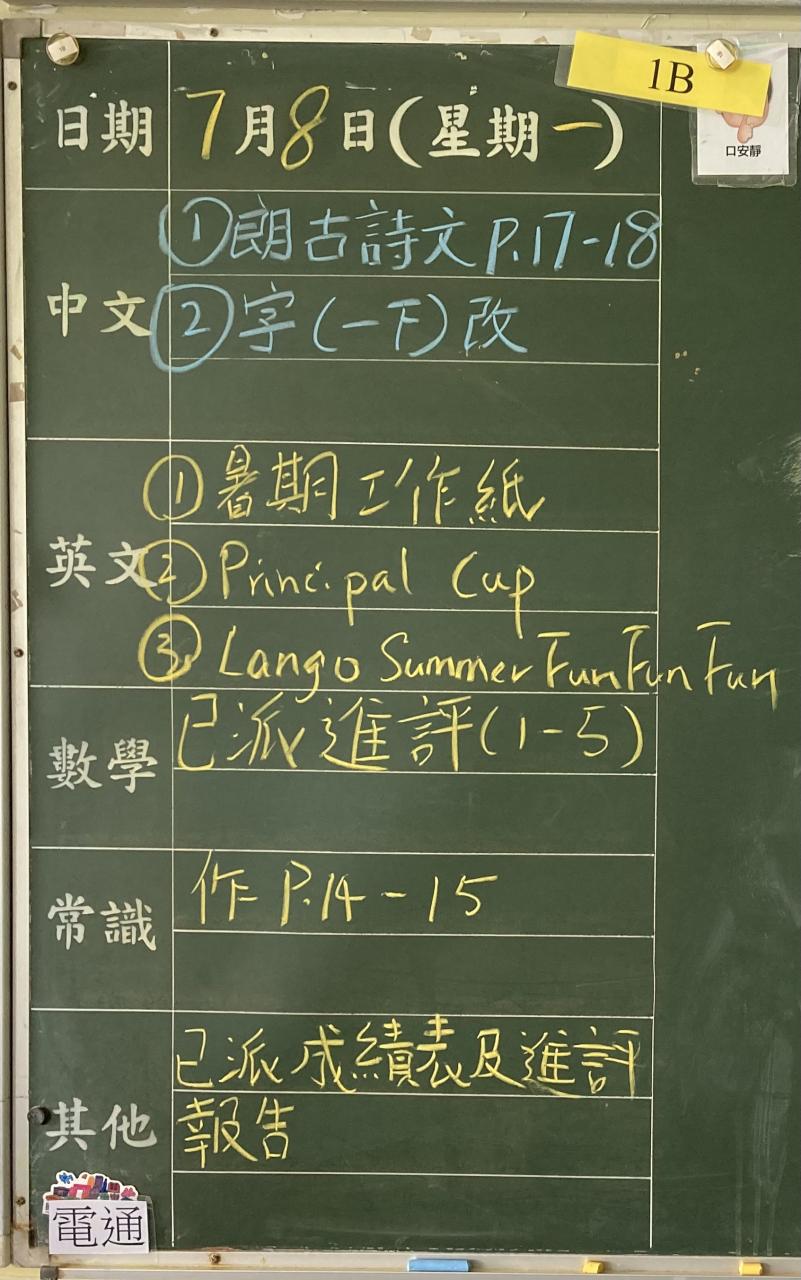 1B
口安靜
日期 7月8日(星期一)
中文 ①朗古詩文 P.17-18
②字(一下)改
英文 ①暑期工作紙
② Principal Cup
③ Lango Summer Fun Fun Fun
數學 已派進評(1-5)
常識 作 P.14-15
其他 已派成績表及進評
報告
電通